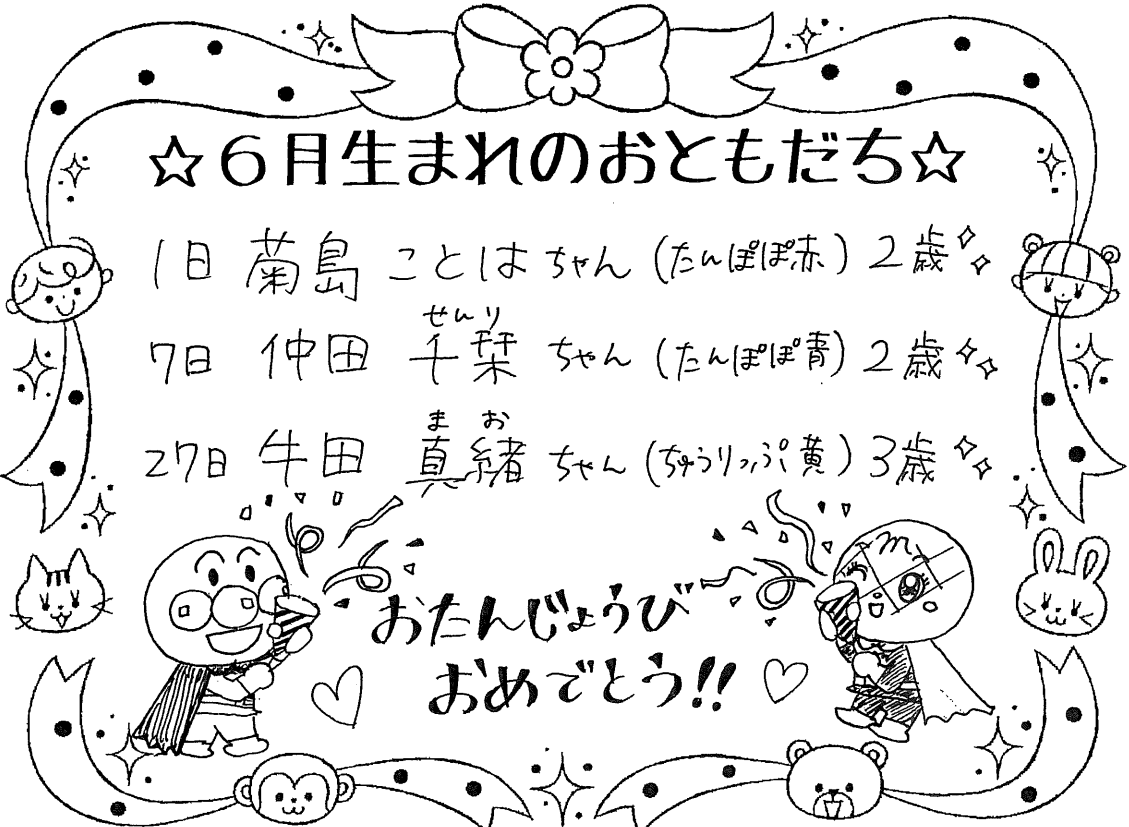 ☆6月生まれのおともだち☆
1日 菊島 ことはちゃん (たんぽぽ赤) 2歳
せんり
7日 仲田 千栞 ちゃん (たんぽぽ青) 2歳
まお
27日 牛田 真緒 ちゃん (ちゅうりっぷ黄) 3歳
おたんじょうび
おめでとう!!
m